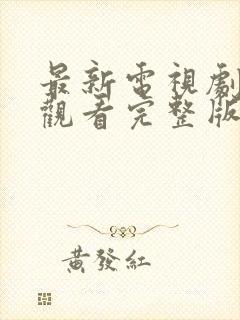 最新電視劇
觀看完整版
黃發紅